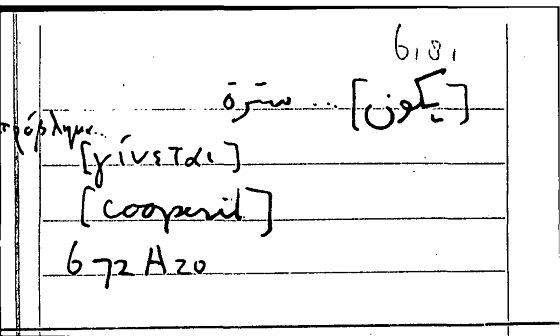 6,8,
[يكون] ... سترة
πρόβλημα...
[γίνεται]
[cooperit]
672 A 20